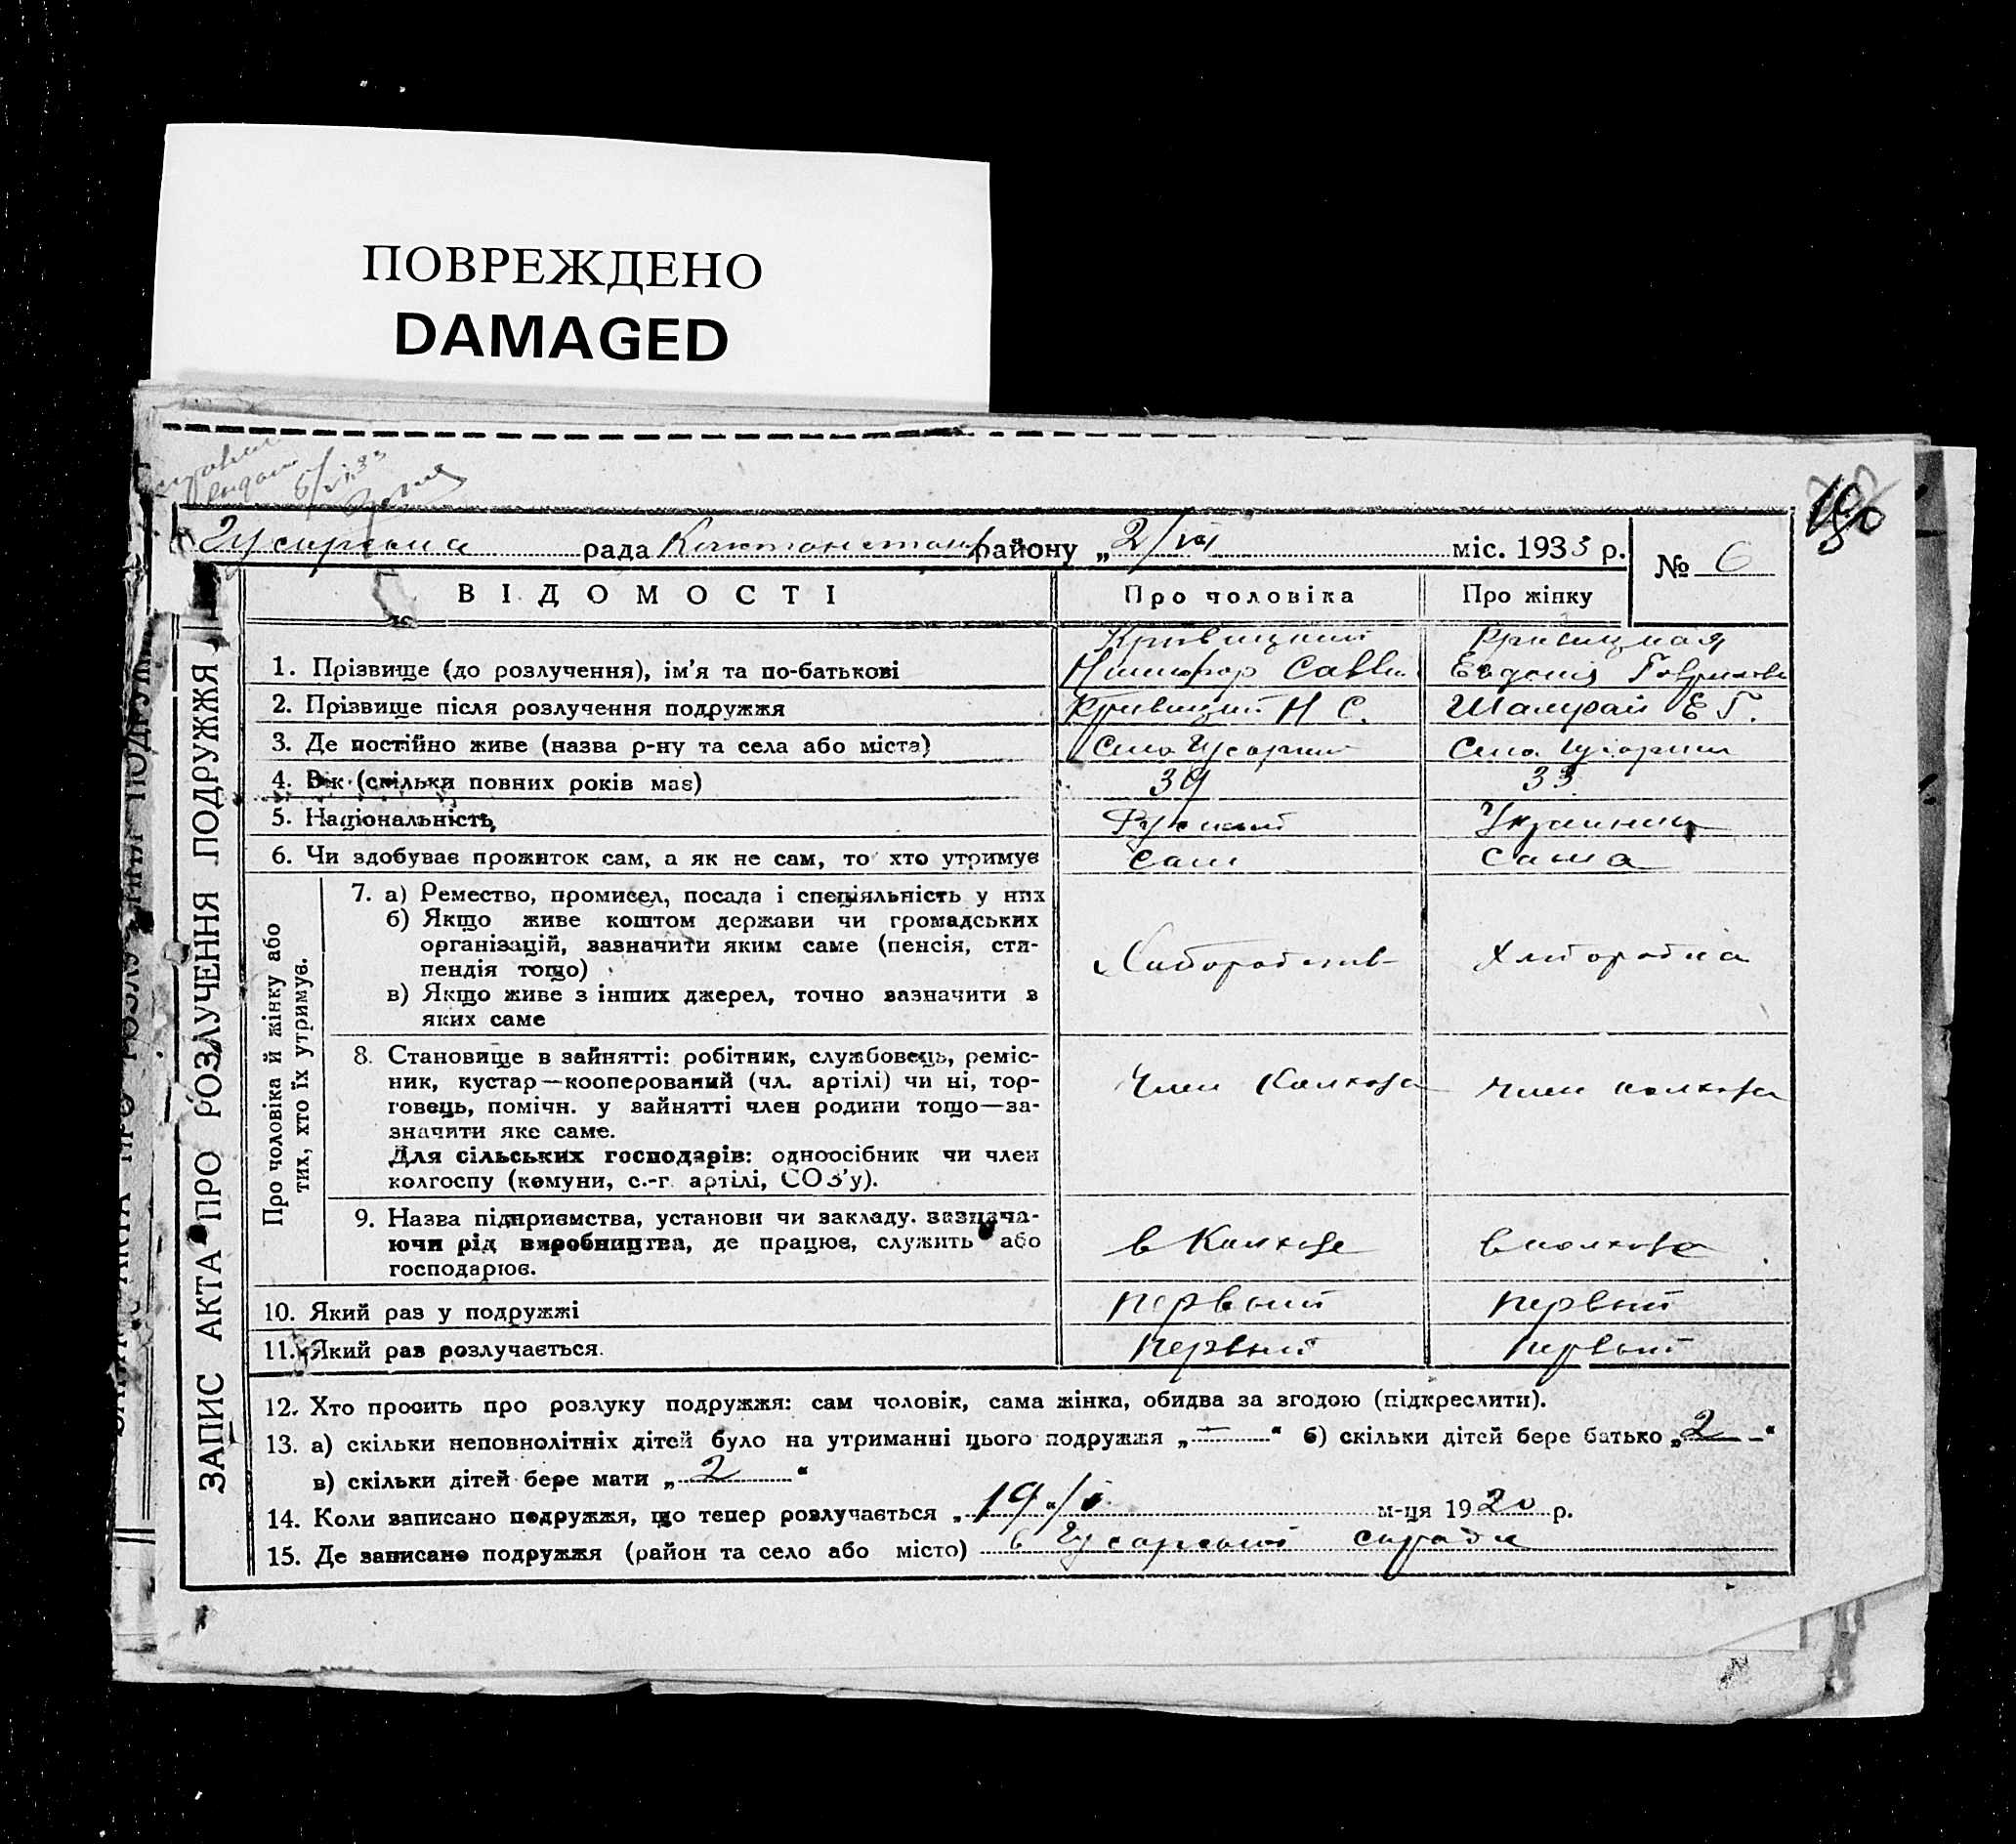 ПОВРЕЖДЕНО
DAMAGED
рада району „2/ міс. 1933 р.
№ 6
ВІДОМОСТІ Про чоловіка Про жінку
1. Прізвище (до розлучення), ім'я та по-батькові Кривицкий Никифор Савви Кривицкая Евдокия Гавриловн
2. Прізвище після розлучення подружжя Кривицкий Н С. Шамрай Е Г.
3. Де постійно живе (назва р-ну та села або міста)
4. Вік (скільки повних років має) 39 33
5. Національність Руский Украинка
6. Чи здобуває прожиток сам, а як не сам, то хто утримує сам сама
Про чоловіка й жінку або тих, хто їх утримує.
7. а) Ремество, промисел, посада і спеціяльність у них
б) Якщо живе коштом держави чи громадських
організацій, зазначити яким саме (пенсія, сти-
пендія тощо)
в) Якщо живе з інших джерел, точно зазначити з
яких саме
8. Становище в зайнятті: робітник, службовець, реміс-
ник, кустар—кооперований (чл. артілі) чи ні, тор-
говець, помічн. у зайнятті член родини тощо—за-
значити яке саме.
Для сільських господарів: одноосібник чи член
колгоспу (комуни, с.-г. артілі, СОЗ'у).
член Колхоза член колхоза
9. Назва підприємства, установи чи закладу, зазнача-
ючи рід виробництва, де працює, служить або
господарює.
в Колхозе в колхозе
10. Який раз у подружжі первый первый
11. Який раз розлучається. первый первый
12. Хто просить про розлуку подружжя: сам чоловік, сама жінка, обидва за згодою (підкреслити).
13. а) скільки неповнолітніх дітей було на утриманні цього подружжя „—“ б) скільки дітей бере батько „2“
в) скільки дітей бере мати „2“
14. Коли записано подружжя, що тепер розлучається „19“/ м-ця 1920 р.
15. Де записано подружжя (район та село або місто) в Гусарській сираде
ЗАПИС АКТА ПРО РОЗЛУЧЕННЯ ПОДРУЖЖЯ